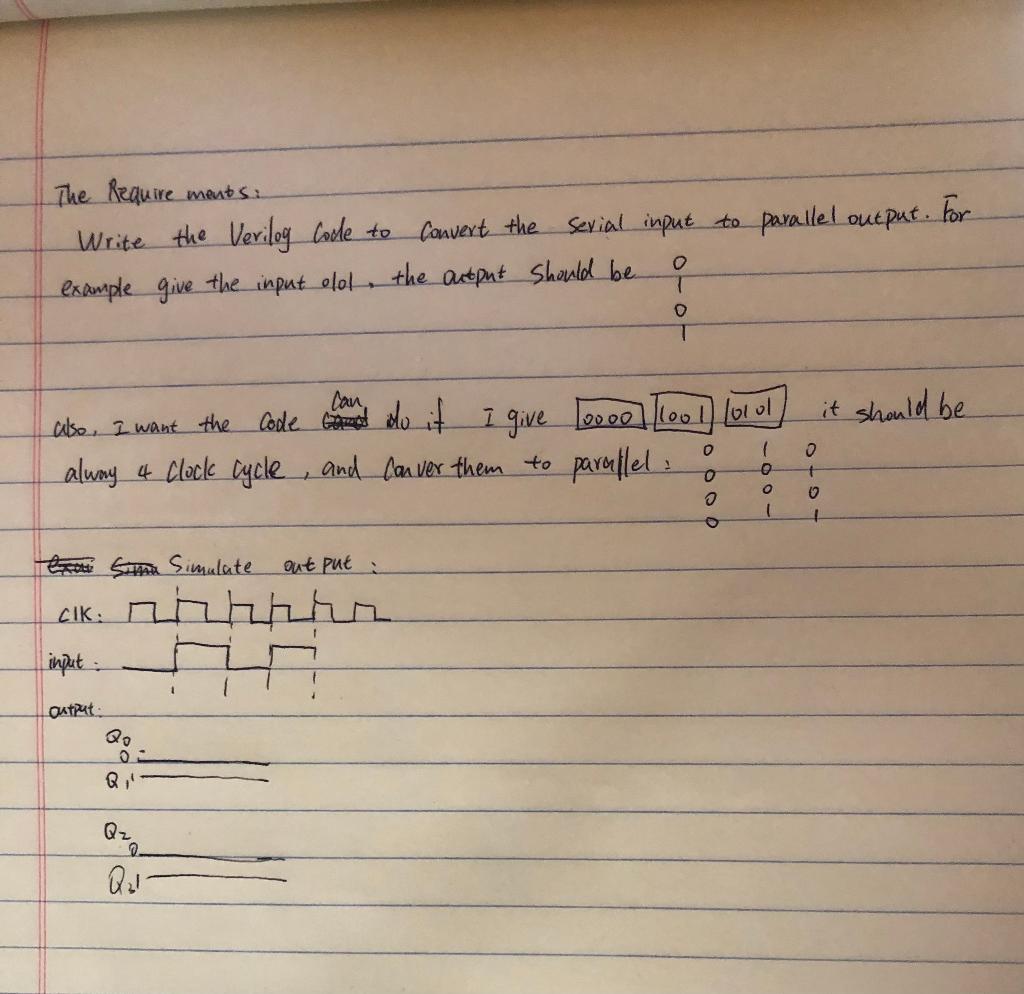 The Requirements:
Write the Verilog Code to Convert the serial input to parallel output. For
example give the input 0101, the output Should be 0
1
0
1
also, I want the Code Can do if I give 0000 1001 0101 it should be
alway 4 Clock Cycle, and Conver them to parallel: 0 1 0
0 0 1
0 0 0
0 1 1
Simulate output:
CIK:
input:
output:
Q0
0
Q1 1
Q2
0
1